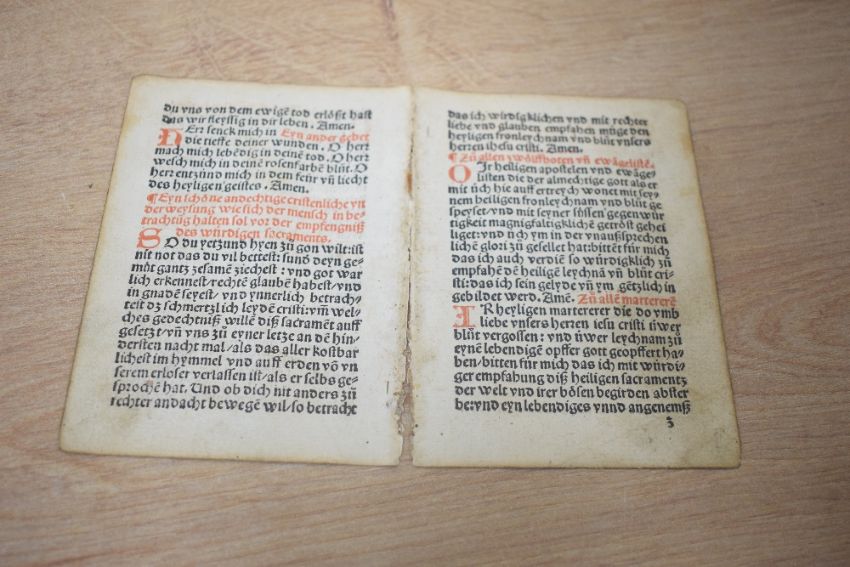 du vns von dem ewigē tod erlößt hast
das wir fleyssig in dir leben. Amen.
Eyn ander gebet
HErꝛ senck mich in
die tieffe deiner wunden. O herꝛ
mach mich lebēdig in deinē tod. O herꝛ
wesch mich in deinē rosenfarbē blůt. O
herꝛ entzünd mich in dem feür vn̄ liecht
des heyligen geistes. Amen.
¶ Eyn schöne andechtige cristenliche vn̄
derweysung wie sich der mensch in be⸗
trachtūg halten sol vor der empfengniß
des würdigen sacraments.
SO du yetzund hyen zů gon wilt: ist
nit not das du vil bettest: sund deyn ge⸗
můt gantz zesamē ziechest: vnd got war
lich erkennest/ rechte glaubē habest/ vnd
in gnadē seyest/ vnd ynnerlich betrach⸗
test dz schmertzlich leydē cristi: vm̄ wel⸗
ches gedechtniß willē diß sacramēt auff
gesetzt/ vn̄ vns zů eyner letze an dē hin⸗
dersten nacht mal/ als das aller kostbar
lichest im hymmel vnd auff erden vō vn
serem erloser verlassen ist/ als er selbs ge⸗
sprochē hat. Und ob dich nit anders zů
rechter andacht bewegē wil/ so betracht
das ich wirdigklichen vnd mit rechter
liebe vnd glauben empfahen müge den
heyligen fronleychnam vnd blůt vnsers
herren ihesu cristi. Amen.
¶ Zů allen zwölffbotten vn̄ ewāgelistē.
OIr heyligen apostelen vnd ewāge⸗
listen die der almechtige gott als er
mit üch hie auff ertreych wonet mit sey⸗
nem heiligen fronleychnam vnd blůt ge
speyset/ vnd mit seyner süssen gegenwür
tigkeit magnigfaltigkliche getröst gehei
liget: vnd üch ym in der vnaußsprechen
lichē glori zů gesellet hat: bittēt für mich
das ich auch verdiē so würdigklich zů
empfahē dē heiligē leychnā vn̄ blůt cri⸗
sti: das ich sein gelydē vn̄ ym götzlich in
gebildet werd. Amē. Zů allē martererē
IR heyligen martererer die do vmb
liebe vnsers herren iesu cristi üwer
blůt vergossen: vnd üwer leychnam zů
eynē lebendigē opffer gott geopffert ha⸗
ben/ bitten für mich das ich mit würdi⸗
ger empfahung diß heiligen sacramentz
der welt vnd irer bösen begirden abster
be: vnd eyn lebendiges vnnd angenemß
3